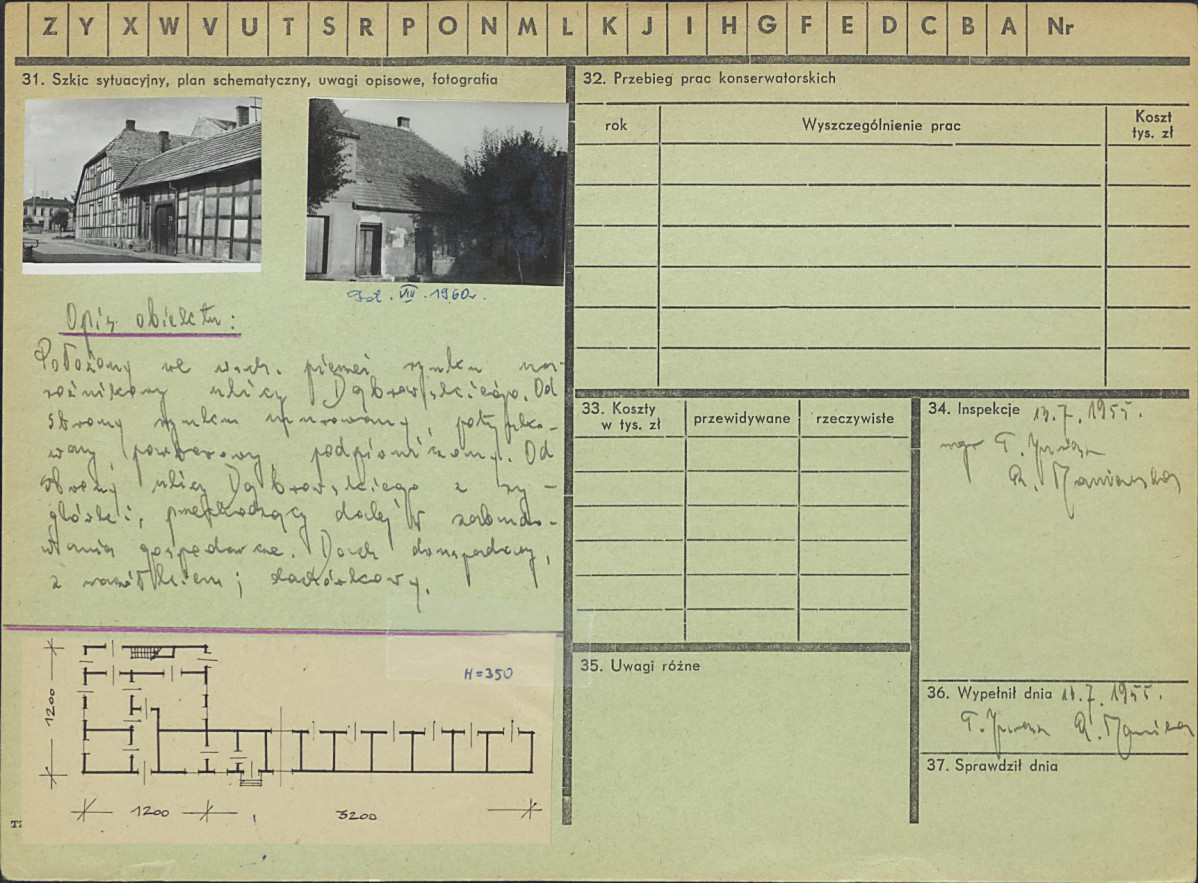 Z Y X W V U T S R P O N M L K J I H G F E D C B A Nr
31. Szkic sytuacyjny, plan schematyczny, uwagi opisowe, fotografia
VIII. 1960r.
Opis obiektu:
Położony we wsch. pierzei rynku na-
rożnikowy ulicy Dąbrowskiego. Od
strony rynku murowany, potynko-
wany, parterowy, podpiwniczony. Od
strony ulicy Dąbrowskiego z
przechodzący dalej w zabudo-
wania gospodarcze. Dach dwuspadowy,
z naczółkiem; dachówkowy.
H=350
1200
1200
3200
32. Przebieg prac konserwatorskich
rok
Wyszczególnienie prac
Koszt
tys. zł
33. Koszty
w tys. zł
przewidywane
rzeczywiste
34. Inspekcje 13.7.1955.
mgr T.
R.
35. Uwagi różne
36. Wypełnił dnia 13.7.1955.
T. R.
37. Sprawdził dnia